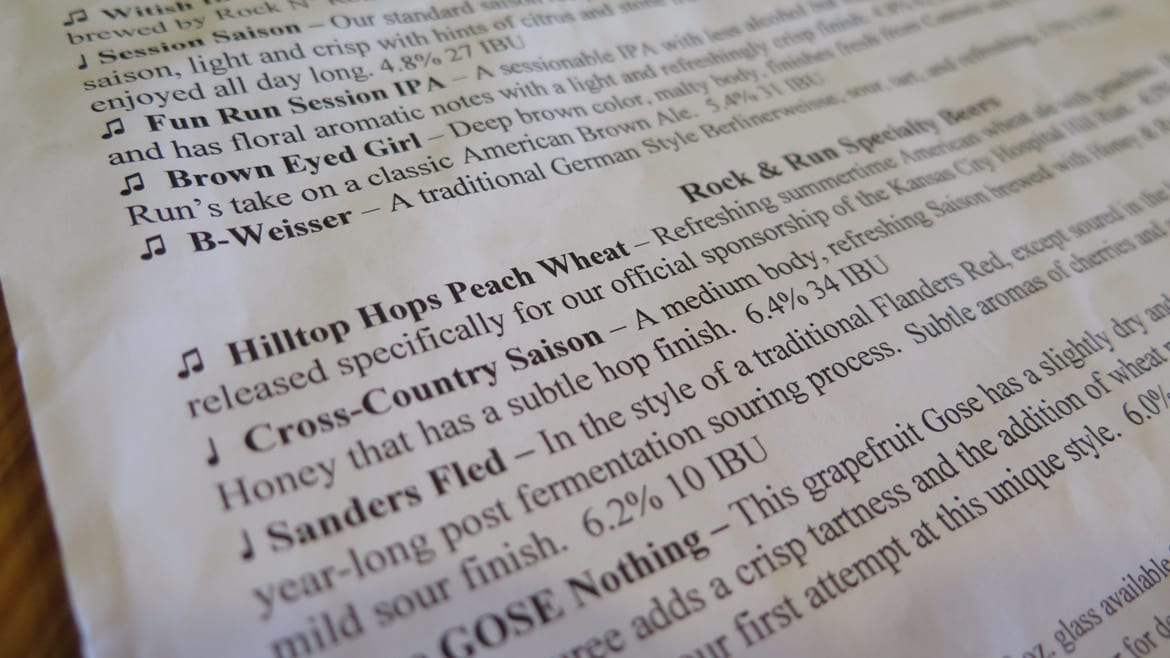 ♫ Witish
brewed by Rock N'
♩ Session Saison – Our standard
saison, light and crisp with hints of citrus and stone
enjoyed all day long. 4.8% 27 IBU
♫ Fun Run Session IPA – A sessionable IPA with less alcohol but
and has floral aromatic notes with a light and refreshingly crisp finish.
♫ Brown Eyed Girl – Deep brown color, malty body, finishes fresh from
Run's take on a classic American Brown Ale. 5.4% 31 IBU
♫ B-Weisser – A traditional German Style Berlinerweisse, sour, tart, and refreshing.
Rock & Run Specialty Beers
♫ Hilltop Hops Peach Wheat – Refreshing summertime American wheat ale with
released specifically for our official sponsorship of the Kansas City Hospital Hill Run.
♩ Cross-Country Saison – A medium body, refreshing Saison brewed with Honey &
Honey that has a subtle hop finish. 6.4% 34 IBU
♩ Sanders Fled – In the style of a traditional Flanders Red, except soured in the
year-long post fermentation souring process. Subtle aromas of cherries and
mild sour finish. 6.2% 10 IBU
GOSE Nothing – This grapefruit Gose has a slightly dry and
adds a crisp tartness and the addition of wheat
first attempt at this unique style. 6.0%
oz. glass available
for